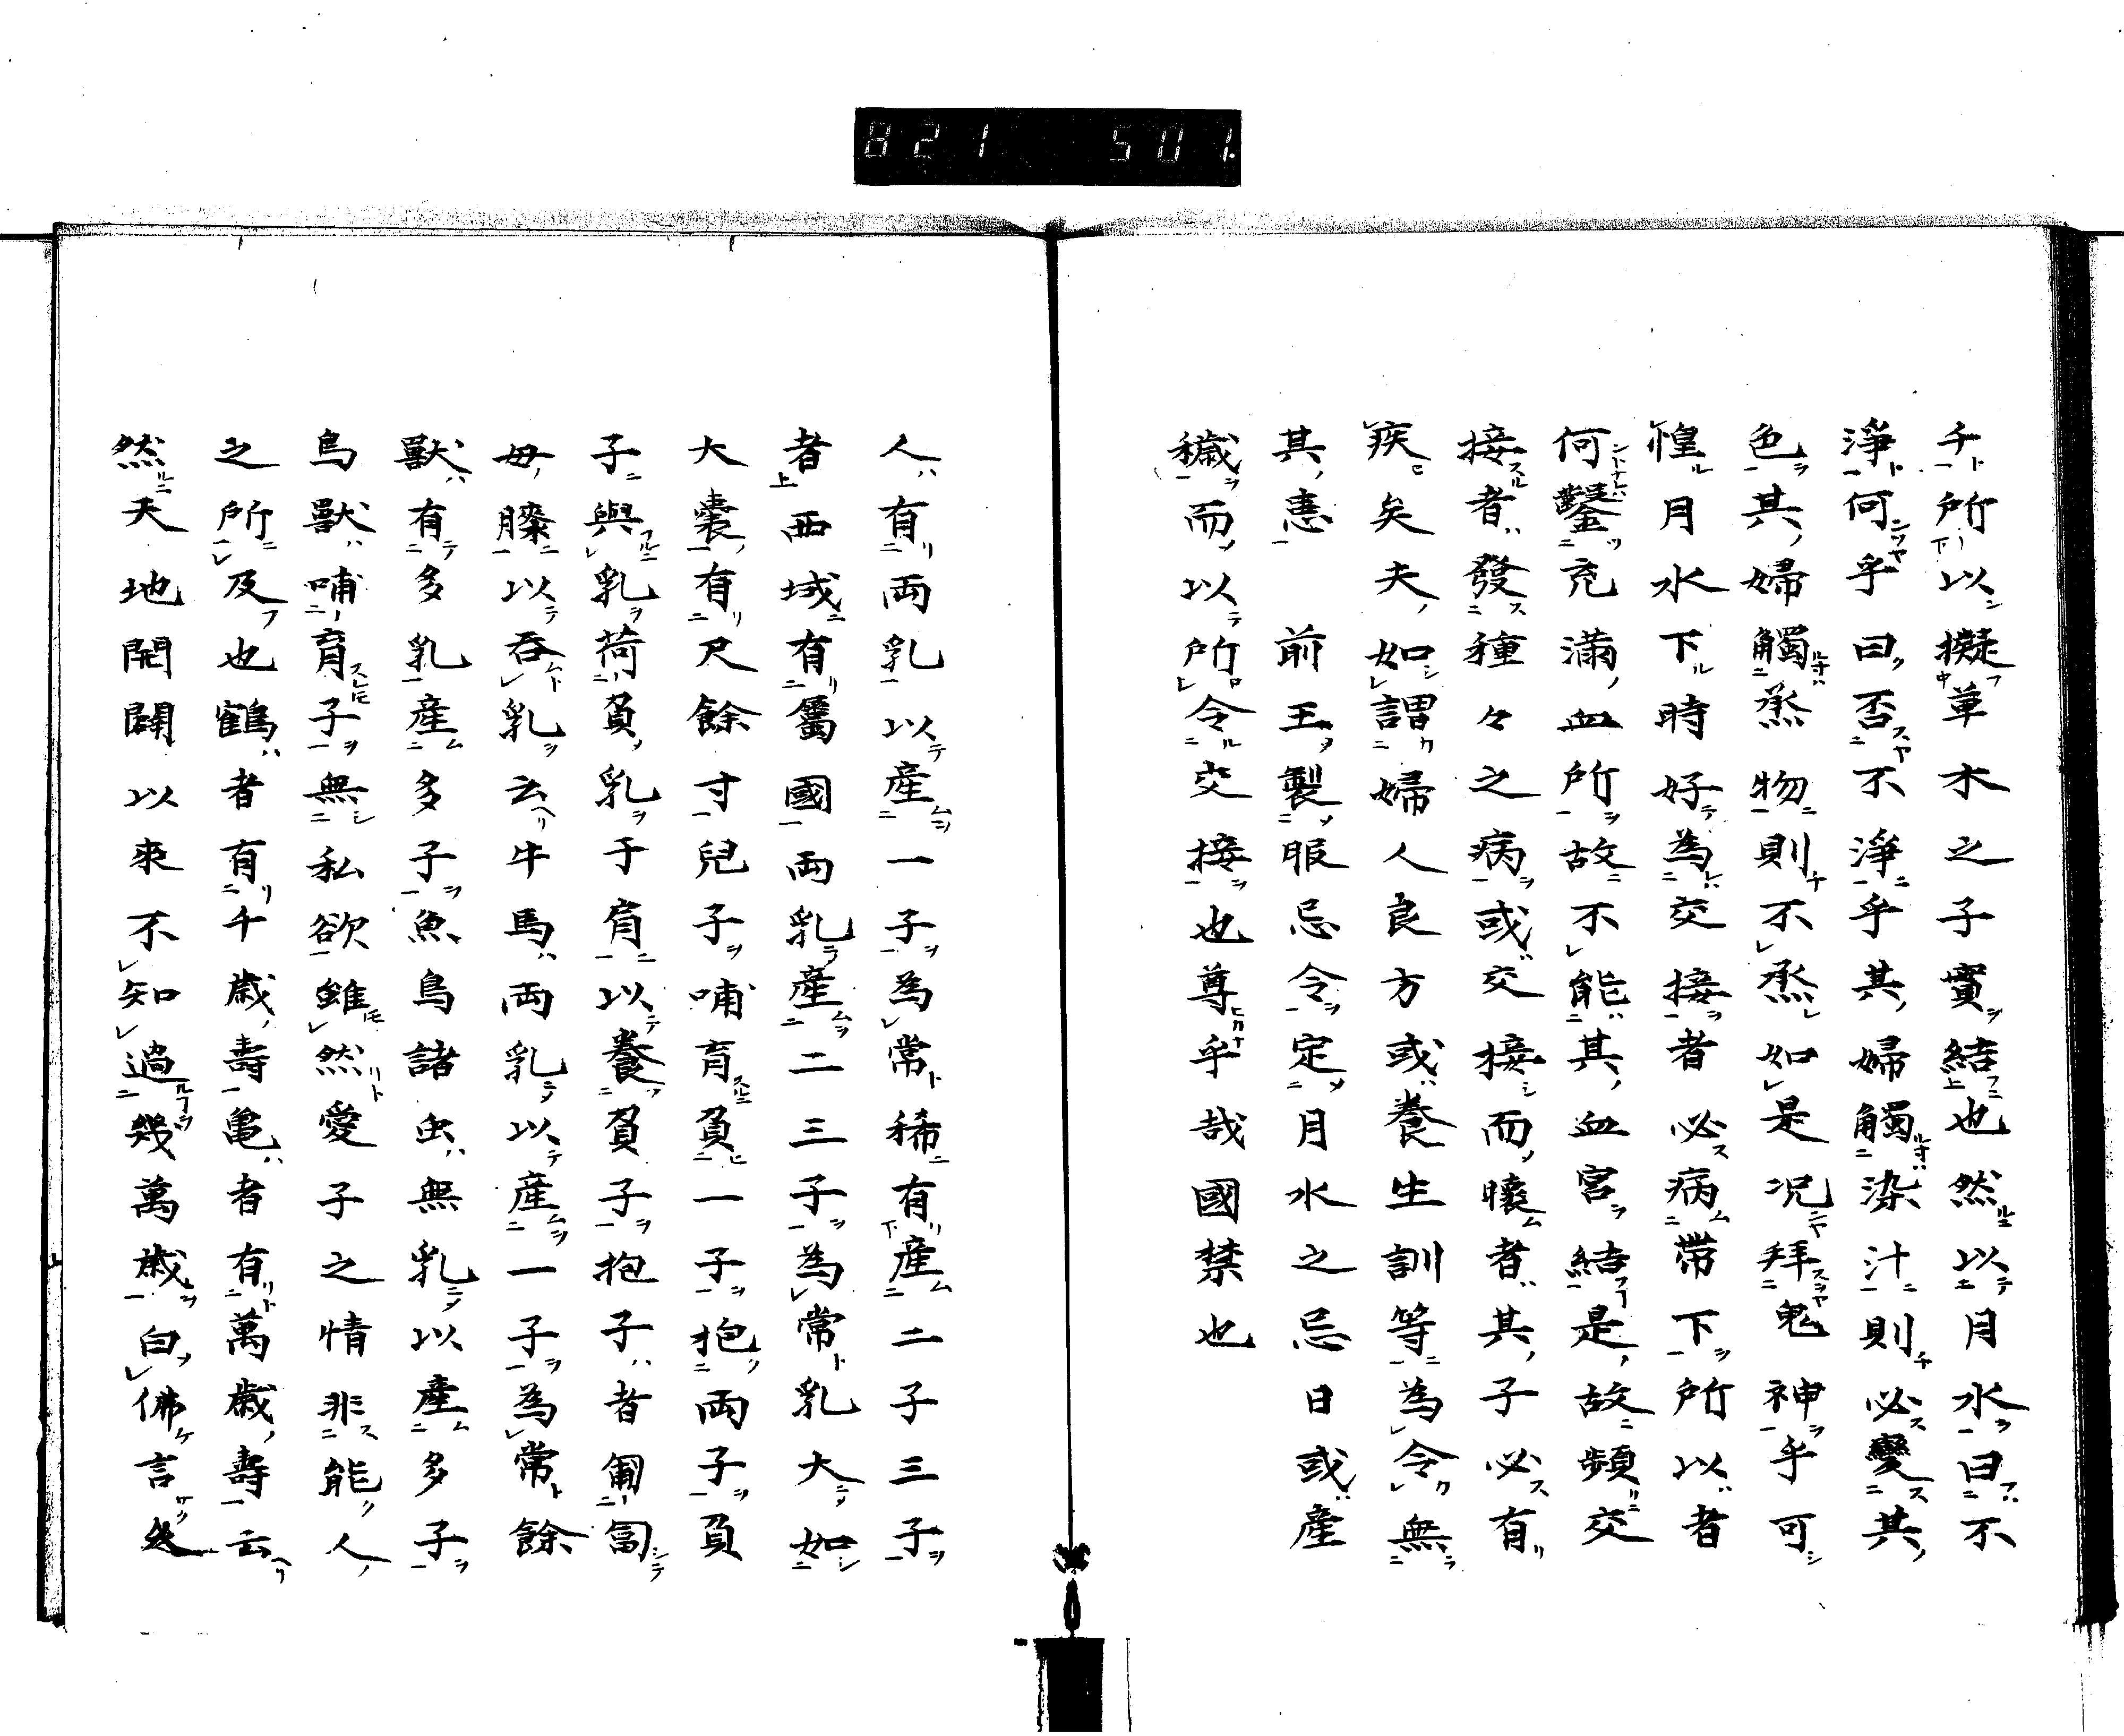 821 501.
千所以擬草木之子實結也然以月水曰不
淨何乎曰否不淨乎其婦觸染汁則必變其
色其婦觸烝物則不烝如是况拜鬼神乎可
惶月水下時好為交接者必病帶下所以者
何鑿充滿血所故不能其血宮結是故頻交
接者發種々之病或交接而懷者其子必有
疾矣夫如謂婦人良方或養生訓等為令無
其恚前王製服忌令定月水之忌日或産
穢而以所令交接也尊乎哉國禁也
人有両乳以産一子為常稀有産二子三子
者西域有屬國両乳産二三子為常乳大如
大嚢有尺餘寸兒子哺育負一子抱両子負
子與乳荷負乳于肩以養負子抱子者匍匐
母膝以吞乳云牛馬両乳以産一子為常餘
獸有多乳産多子魚鳥諸虫無乳以産多子
鳥獸哺育子無私欲雖然愛子之情非能人
之所及也鶴者有千歳壽亀者有萬歳壽云
然天地開闢以來不知過幾萬歳白佛言